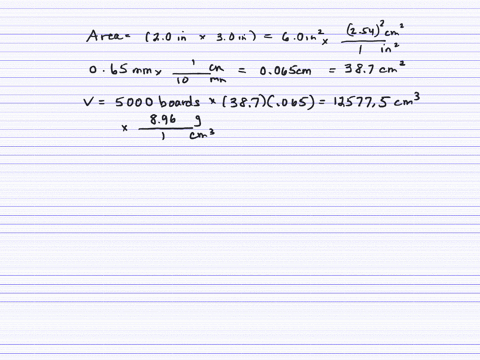 Area = (2.0 in × 3.0 in) = 6.0 in² × (2.54)² cm² / 1 in²
0.65 mm × 1 cm / 10 mm = 0.065cm = 38.7 cm²
V = 5000 boards × (38.7)(.065) = 12577,5 cm³
× 8.96 g / 1 cm³